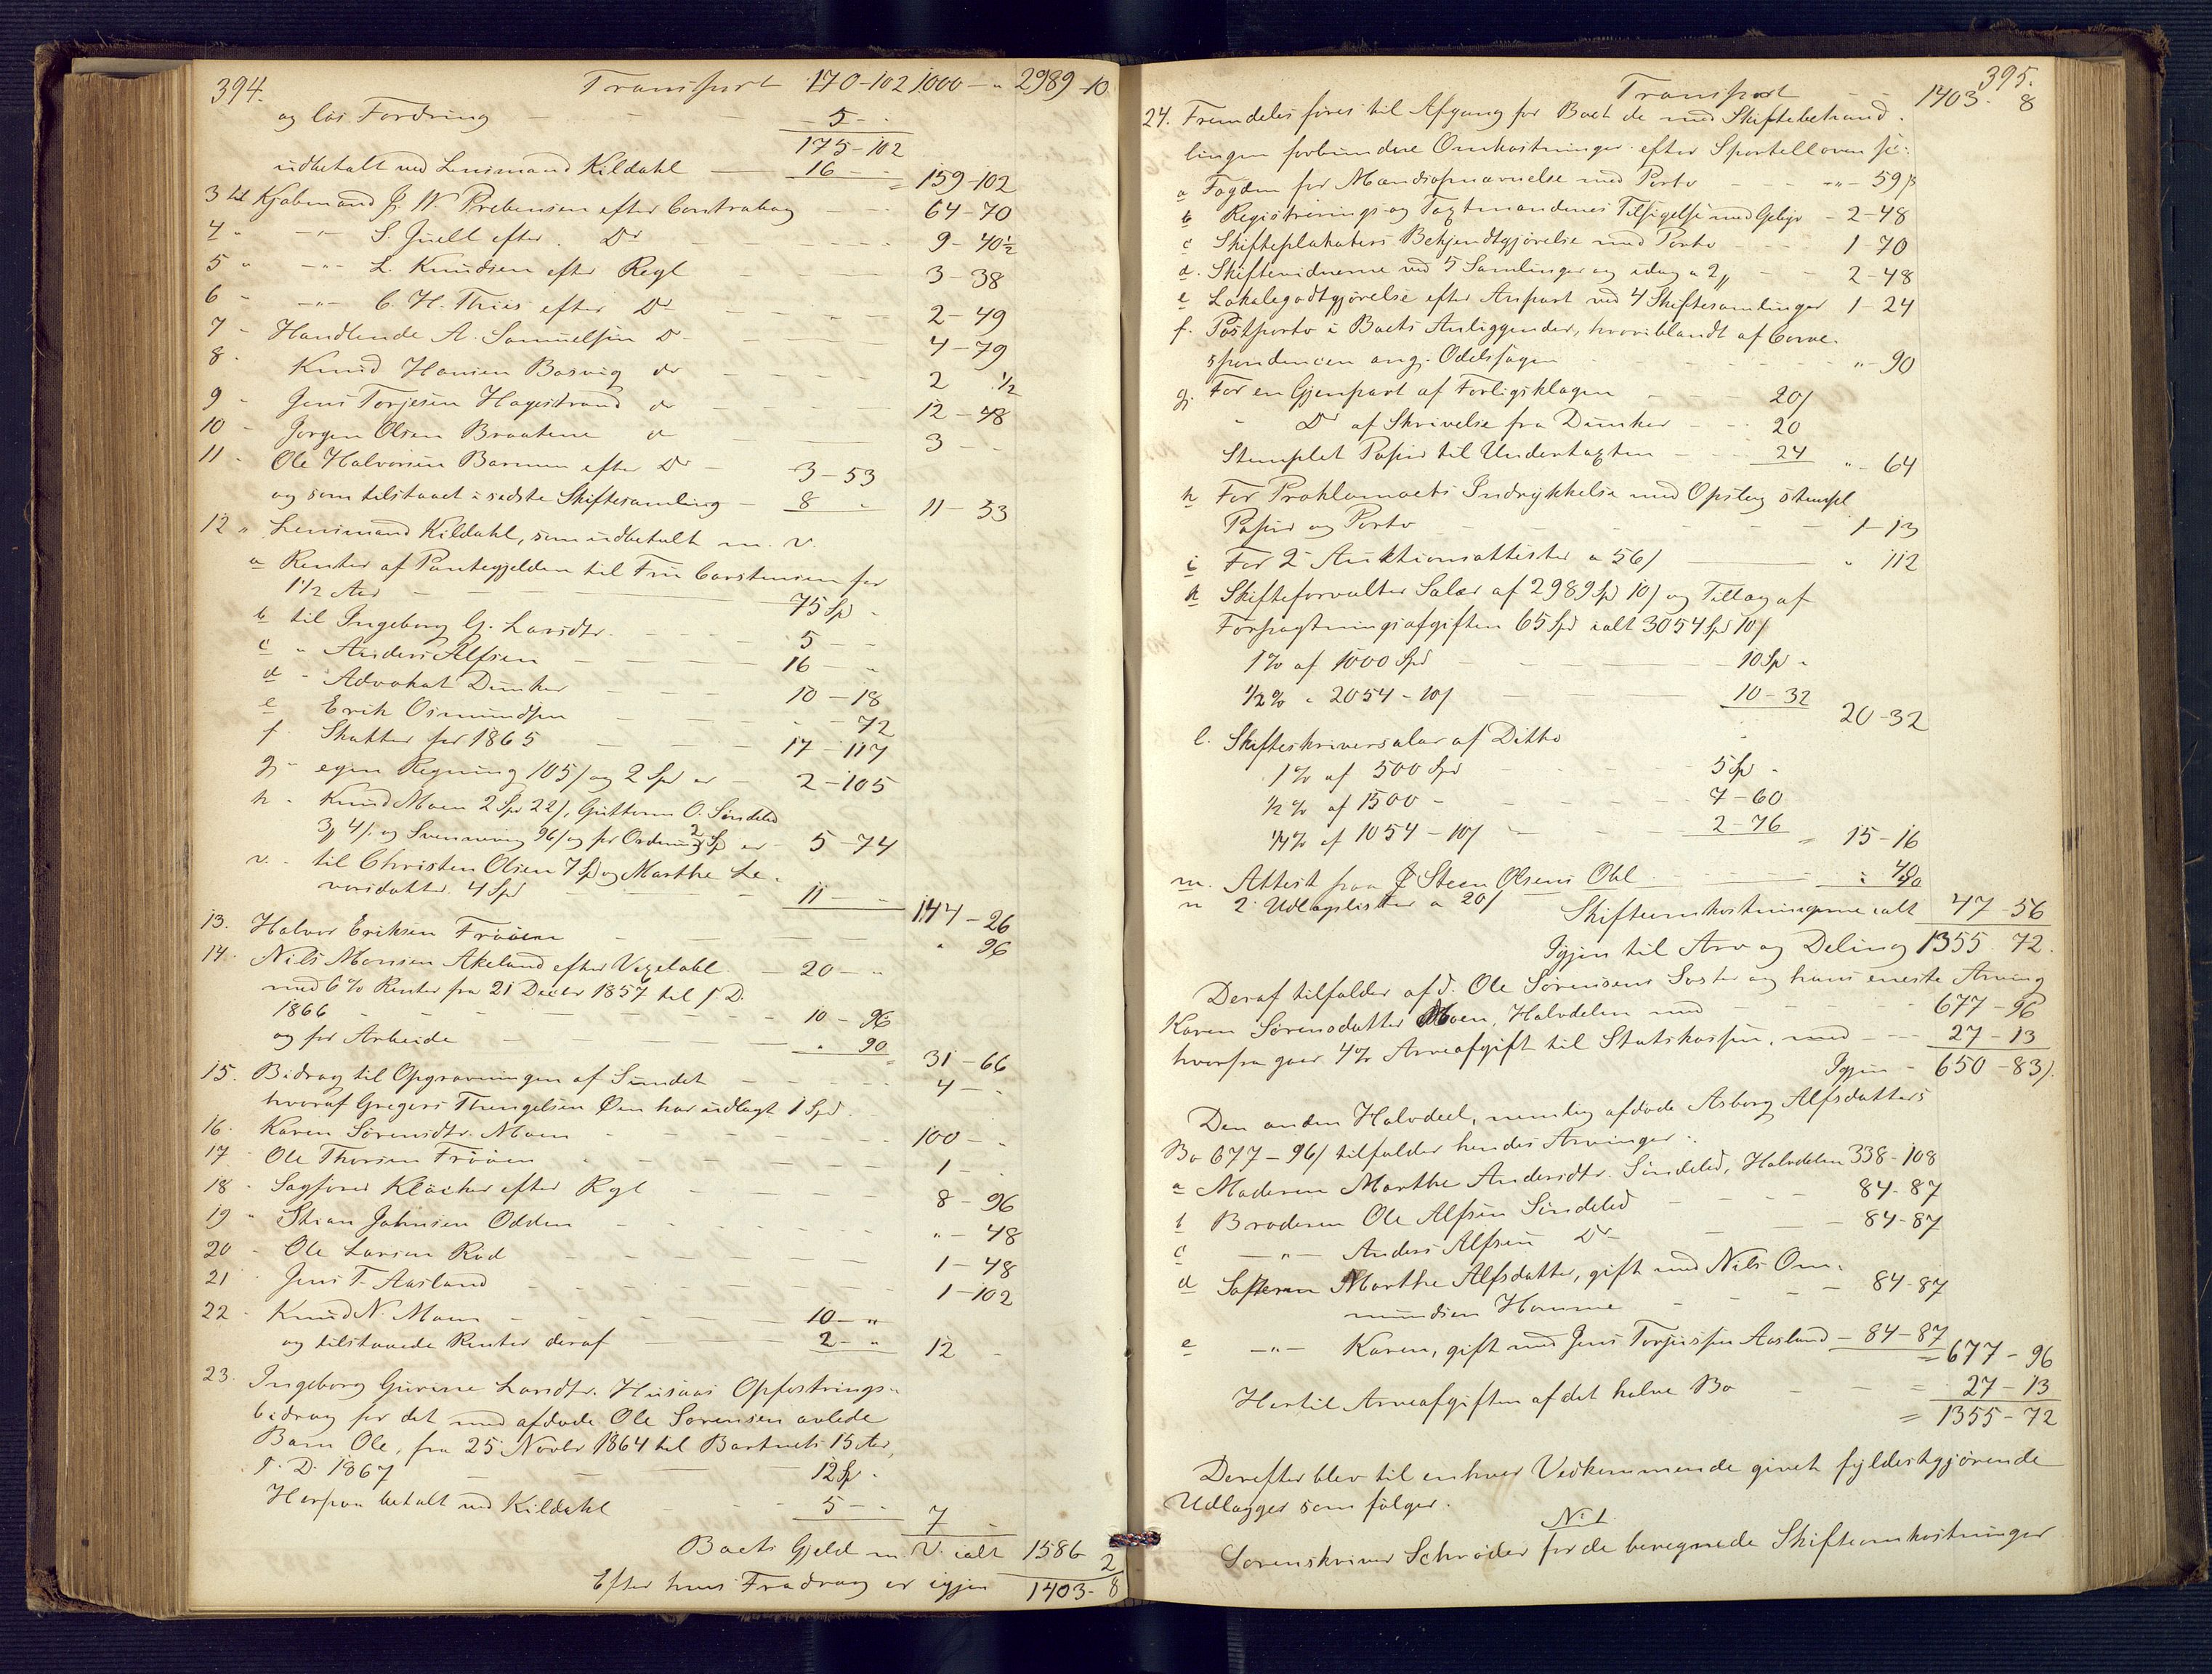 394.
Transport 170-102 1000-" 2989-10
og løs Fordring - - - 5 - "
175-102
udbetalt ved Lensmand Kildahl - 16 - " = 159-102
3 til Kjøbmand J. W. Prebensen efter Contrabog - - 64-70
4 " -"- S. Juell efter Do - - - 9-40½
5 " -"- L. Knudsen efter Regl - - - 3-38
6 " -"- C. H. Thies efter Do - - - 2-49
7 " Handlende A. Samuelsen Do - - - 4-79
8 " Knud Hansen Bosvig do - - - 2 " ½
9 " Jens Torjesen Hagestrand do - - - 12-48
10 - Jørgen Olsen Braatene do - - - 3 - -
11 - Ole Halvorsen Barmen efter Do - 3-53
og som tilstaaet i sidste Skiftesamling - 8 " 11-53
12 " Lensmand Kildahl, som udbetalt m. v.
a Renter af Pantegjelden til Fru Carstensen for
1½ Aar - - - 75 Spd -
b til Ingeborg G. Larsdtr. - - 5 - -
c " Anders Alfsen - - - 16 - "
d - Advokat Dunker - - - 10-18
e Erik Osmundsen - - - " - 72
f Skatter for 1865 - - - 17-117
g " egen Regning 105/ og 2 Spd er - 2-105
h - Knud Moen 2 Spd 22/, Guttorm O. Søndeled
3" 4/. og Svenning 96/ og for Ordning 2 Sp er - 5-74
v. - til Christen Olsen 7 Spd og Marthe Le-
vorsdatter 4 Spd - 11 - 144-26
13. Halvor Eriksen Frøøien - - - " 96
14. Nils Monsen Akeland efter Vexelobl. - 20 - "
med 6% Renter fra 21 Decbr 1857 til s. D.
1866 - - - 10-96
og for Arbeide - - - " 90 = 31-66
15. Bidrag til Opgravningen af Sundet - - - 4 - -
hvoraf Gregers Thengelsen Øen har udlagt 1 Spd.
16. Karen Sørensdtr. Moen - - - 100 - -
17 - Ole Thorsen Frøøien - - - 1 - -
18 - Sagfører Klöcker efter Rgl - - - 8-96
19 " Stian Johnsen Odden - - - " - 48
20 - Ole Larsen Rød - - - 1-48
21 " Jens T. Aasland - - - 1-102
22 - Knud N. Moen - - - 10 - "
og tilstaaede Renter deraf - 2 - " 12 -
23. Ingeborg Gurine Larsdtr. Husaas Opfostrings-
bidrag for det med afdøde Ole Sørensen avlede
Barn Ole, fra 25 Novbr 1864 til Barnets 15 Aar,
s. D. 1867 - - 12 Sp. -
Herpaa betalt ved Kildahl - - 5 - - 7 -
Boets Gjeld m. V. ialt 1586 2
Efter hvis Fradrag er igjen 1403-8
395.
Transport - - 1403. 8
24. Fremdeles føres til Afgang for Boet de med Skiftebehand-
lingen forbundne Omkostninger efter Sportelloven s:
a Fogden for Mandsopnævnelse med Porto - - - " - 59 ß
b Registrerings og Taxtmændenes Tilsigelse med Gebyr - 2-48
c Skifteplakaters Bekjendtgjørelse med Porto - - 1-70
d. Skiftevidnerne ved 5 Samlinger og idag a 2" - - 2-48
e Lokalegodtgjørelse efter Anpart ved 4 Skiftesamlinger 1-24
f. Postporto i Boets Anliggender, hvoriblandt af Corre-
spondencen ang. Odelssagen - - - " - 90
g. For en Gjenpart af Forligsklagen - - 20/
" Do af Skrivelse fra Dunker - - 20
Stemplet Papir til Undertaxten - - 24 " - 64
h For Proklamaets Indrykkelse med Opslag stempl
Papir og Porto - - - 1-13
i For 2 Auktionsattester a 56/ - - " 112
k Skifteforvalter Salær af 2989 Spd 10/ og Tillæg af
Forpagtningsafgiften 65 Spd ialt 3054 Spd 10/
1% af 1000 Spd - - 10 Sp "
½% " 2054-10/ - - 10-32
20-32
l. Skifteskriversalær af Ditto
1% af 500 Spd - - 5 Sp -
½% af 1500 - - - 7-60
¼% af 1054-10/ - - 2-76 = 15-16
m. Attest paa J Steen Olsens Obl - - : 40
n 2 Udlægslister a 20/
Skifteomkostningerne ialt 47-56
Igjen til Arv og Deling 1355 72.
Deraf tilfalder afd. Ole Sørensens Søster og hans eneste Arving
Karen Sørensdatter Moen, Halvdelen med - 677-96
hvorfra gaar 4% Arveafgift til Statskassen, med - - 27-13
Igjen - 650-83/.
Den anden Halvdeel, nemlig afdøde Asborg Alfsdatters
Bo 677-96/ tilfalder hendes Arvinger:
a Moderen Marthe Andersdtr. Søndeled, Halvdelen 338-108
b Broderen Ole Alfsen Søndeled - - 84-87
c -"- Anders Alfsen Do - - 84-87
d Søsteren Marthe Alfsdatter, gift med Nils Om-
mundsen Homme - - - 84-87
e -"- Karen, gift med Jens Torjussen Aasland - 84-87
= 677-96
Hertil Arveafgiften af det halve Bo - - = 27-13
= 1355-72
Derefter blev til enhver Vedkommende givet fyldestgjørende
Udlægger som følger.
No 1.
Sorenskriver Schrøder for de beregnede Skifteomkostninger